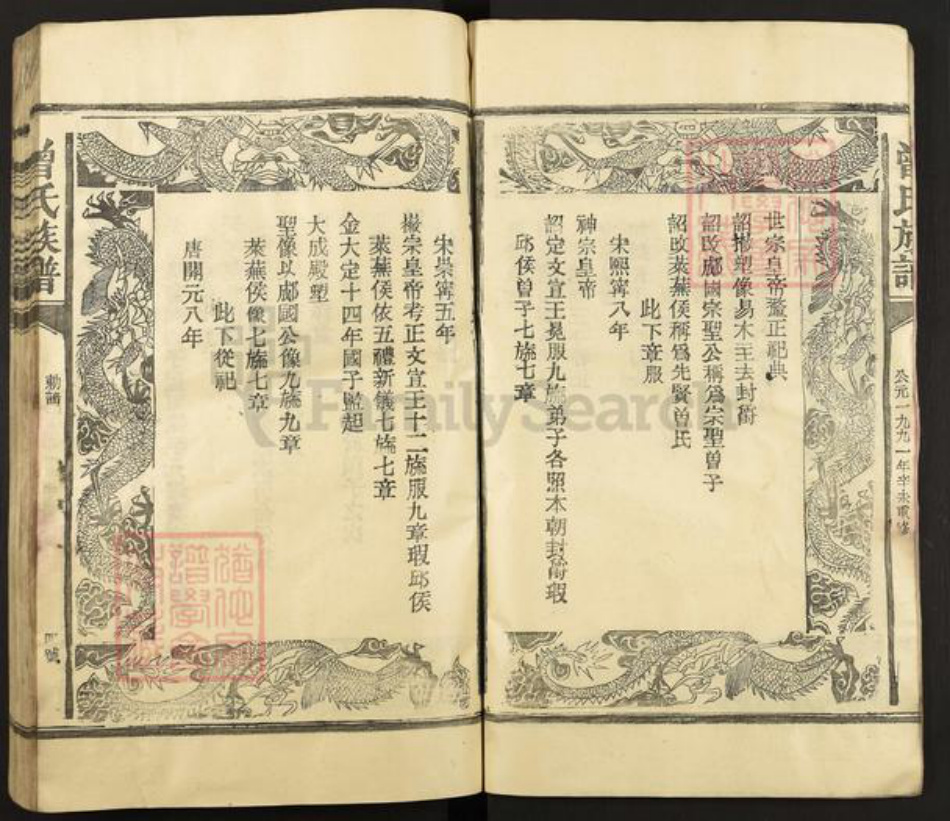 曾氏族譜
公元一九九一年辛未重修
世宗皇帝釐正祀典
詔撤塑像易木主去封爵
詔改郕國宗聖公稱爲宗聖曾子
詔改萊蕪侯稱爲先賢曾氏
此下章服
宋熙寧八年
神宗皇帝
詔定文宣王冕服九旒弟子各照本朝封爵瑕
邱侯曾子七旒七章
宋崇寧五年
徽宗皇帝考正文宣王十二旒服九章瑕邱侯
萊蕪侯依五禮新儀七旒七章
金大定十四年國子監起
大成殿塑
聖像以郕國公像九旒九章
萊蕪侯像七旒七章
此下從祀
唐開元八年
曾氏族譜
號
FamilySearch